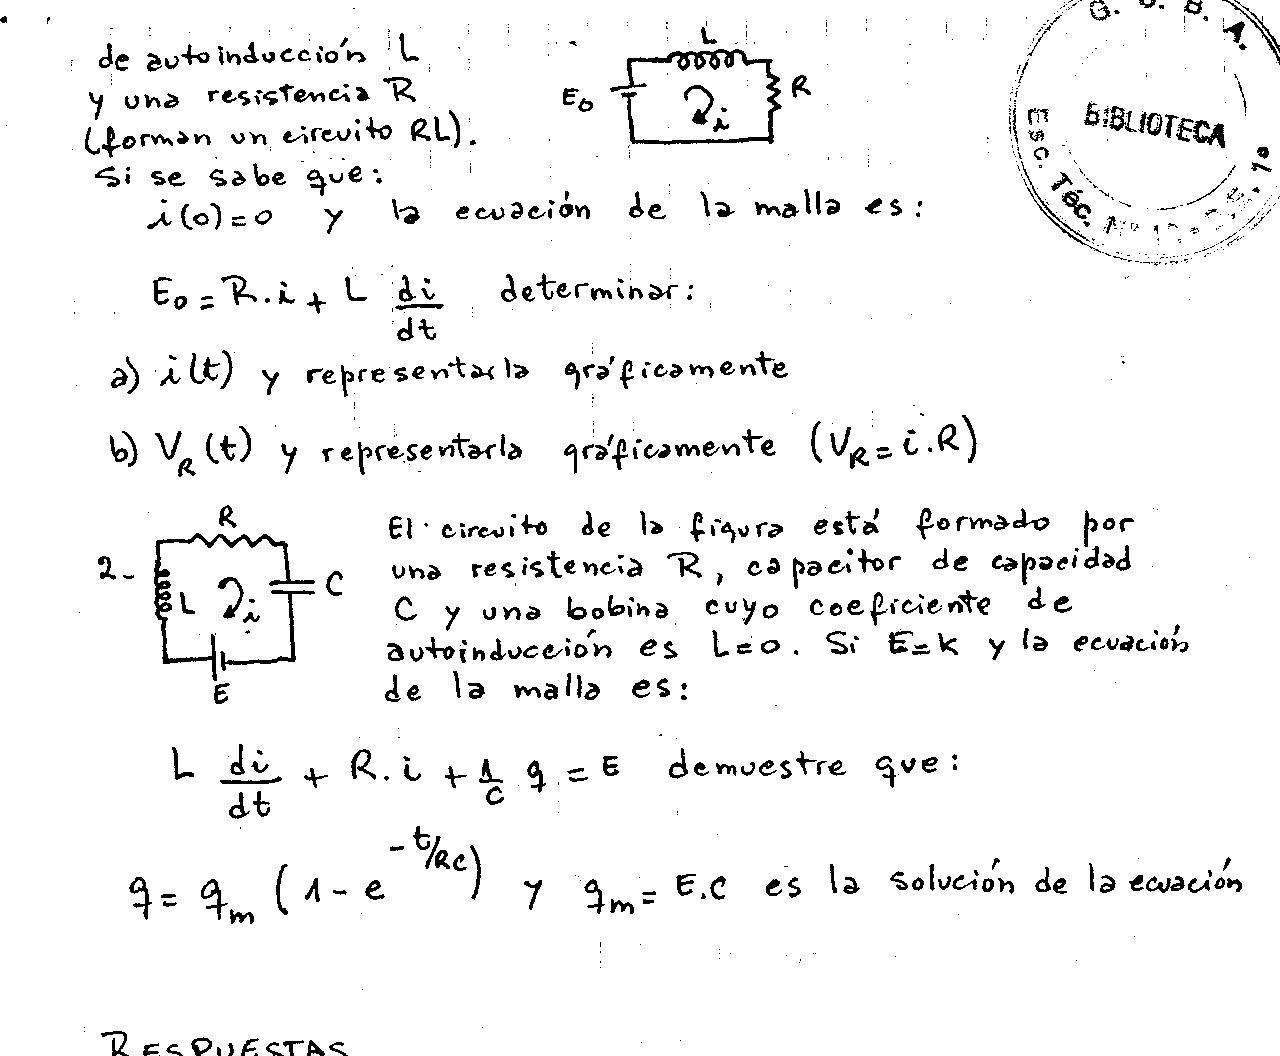 de autoinducción L
y una resistencia R
(forman un circuito RL).
Si se sabe que:
i(0)=0 y la ecuación de la malla es:
L
E₀ R
i
E₀ = R.i + L di/dt determinar:
a) i(t) y representarla gráficamente
b) V_R(t) y representarla gráficamente (V_R = i.R)
2- R
L i C
E
El circuito de la figura está formado por
una resistencia R, capacitor de capacidad
C y una bobina cuyo coeficiente de
autoinducción es L=0. Si E=k y la ecuación
de la malla es:
L di/dt + R.i + 1/C q = E demuestre que:
q = q_m (1 - e^(-t/RC)) y q_m = E.C es la solución de la ecuación
RESPUESTAS
G. C. B. A.
BIBLIOTECA
Esc. Téc. Nº